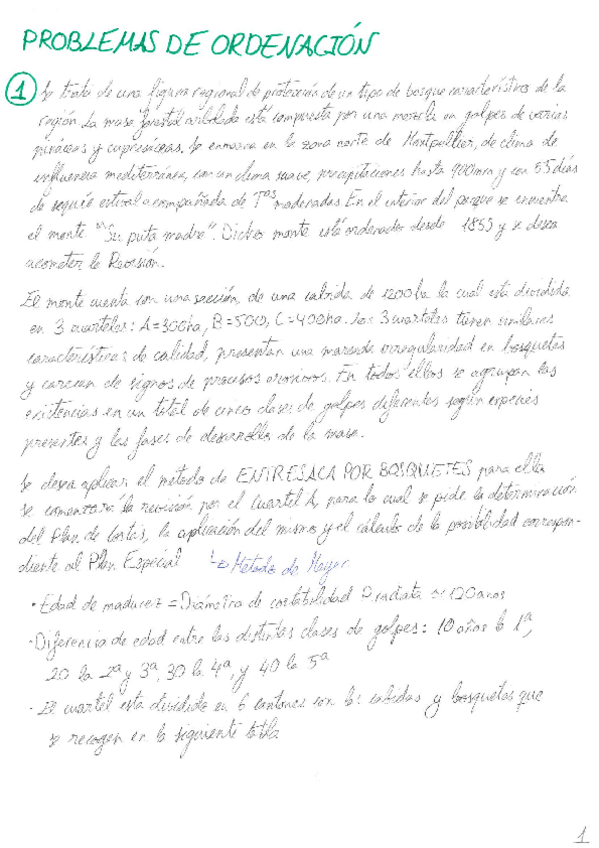 PROBLEMAS DE ORDENACIÓN
1 Se trata de una figura regional de protección de un tipo de bosque característico de la
región. La masa forestal arbolada está compuesta por una mezcla en golpes de varias
pináceas y cupresáceas. Se enmarca en la zona norte de Montpellier, de clima de
influencia mediterránea, con un clima suave, precipitaciones hasta 900mm y con 55 días
de sequía estival acompañada de Tas moderadas. En el interior del parque se encuentra
el monte "Su puta madre". Dicho monte está ordenado desde 1853 y se desea
acometer la Revisión.
El monte cuenta con una sección, de una cabida de 1200 ha la cual está dividida
en 3 cuarteles: A=300ha, B=500, C=400ha. Los 3 cuarteles tienen similares
características de calidad, presentan una marcada irregularidad en bosquetes
y carecen de signos de procesos erosivos. En todos ellos se agrupan las
existencias en un total de cinco clases de golpes diferentes según especies
presentes y las fases de desarrollo de la masa.
Se desea aplicar el metodo de ENTRESACA POR BOSQUETES para ello
se comenzará la revisión por el Cuartel A, para lo cual se pide la determinación
del Plan de Cortas, la aplicación del mismo y el cálculo de la posibilidad correspon-
diente al Plan Especial ↳ Metodo de Meyer
· Edad de madurez = Diámetro de cortabilidad P. radiata ≈ 120 años
· Diferencia de edad entre las distintas clases de golpes: 10 años la 1ª,
20 la 2ª y 3ª, 30 la 4ª, y 40 la 5ª
· El cuartel esta dividido en 6 cantones con las cabidas y bosquetes que
se recogen en la siguiente tabla
1